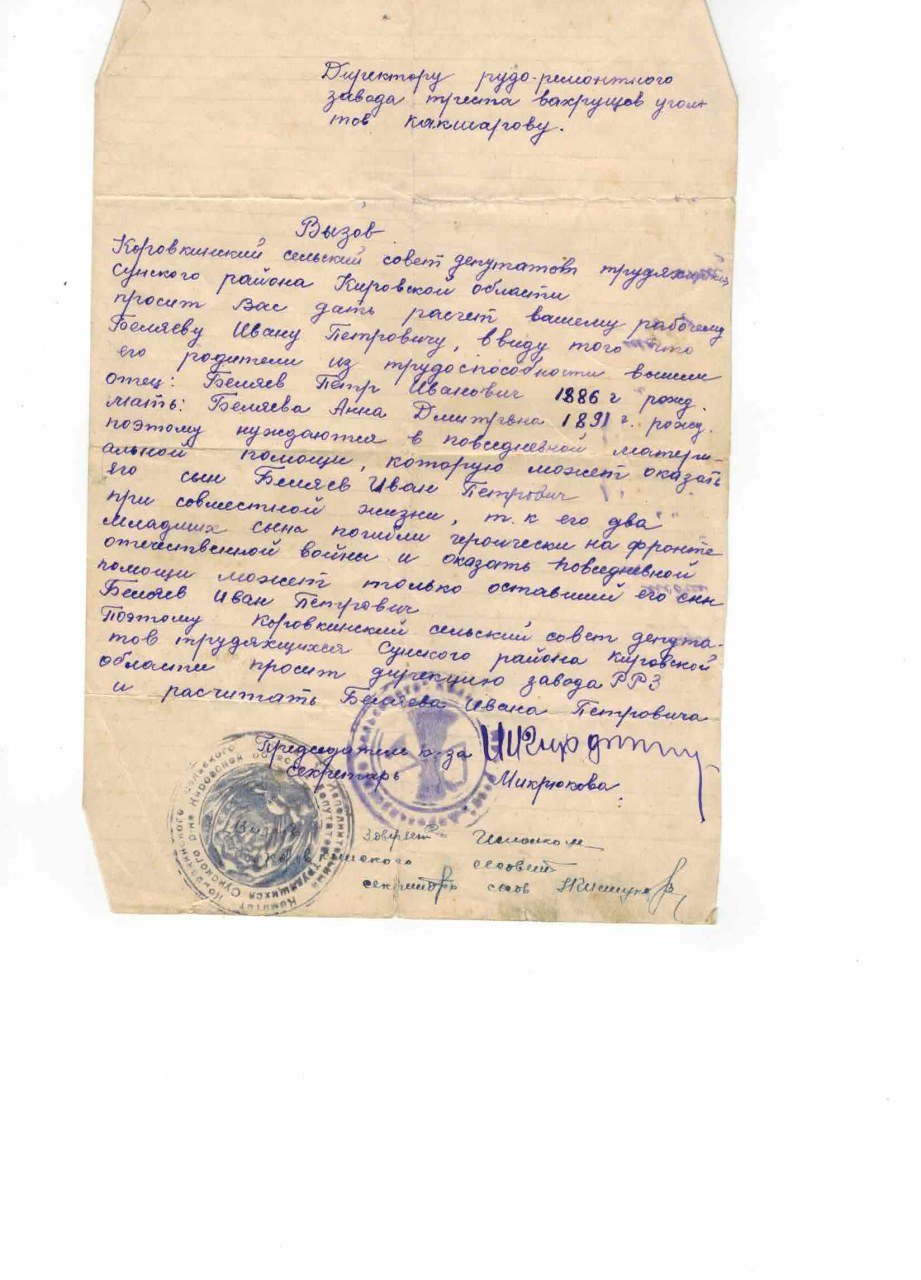 Директору рудо-ремонтного
завода треста вахрушов уголь
тов какшаргову.
Вызов
Коровкинский сельский совет депутатов трудящихся
Сунского района Кировской области
просит Вас дать расчет вашему рабочему
Беляеву Ивану Петровичу, ввиду того что
его родители из трудоспособности вышли
отец: Беляев Петр Иванович 1886 г рожд.
мать: Беляева Анна Дмитрвна 1891 г. рожд.
поэтому нуждаются в повседневной матери-
альной помощи, которую может оказать
его сын Беляев Иван Петрович
при совместной жизни, т.к его два
младших сына погибли героически на фронте
отечественной войны и оказать повседневной
помощи может только оставший его сын
Беляев Иван Петрович
Поэтому Коровкинский сельский совет депута-
тов трудящихся Сунского района Кировской
области просит дирекцию завода РРЗ
и расчитать Беляева Ивана Петровича
Председатель к-за
секретарь Микрюкова
исполнительный Комитет
Сунского р-на Кировской
депутатов трудящихся